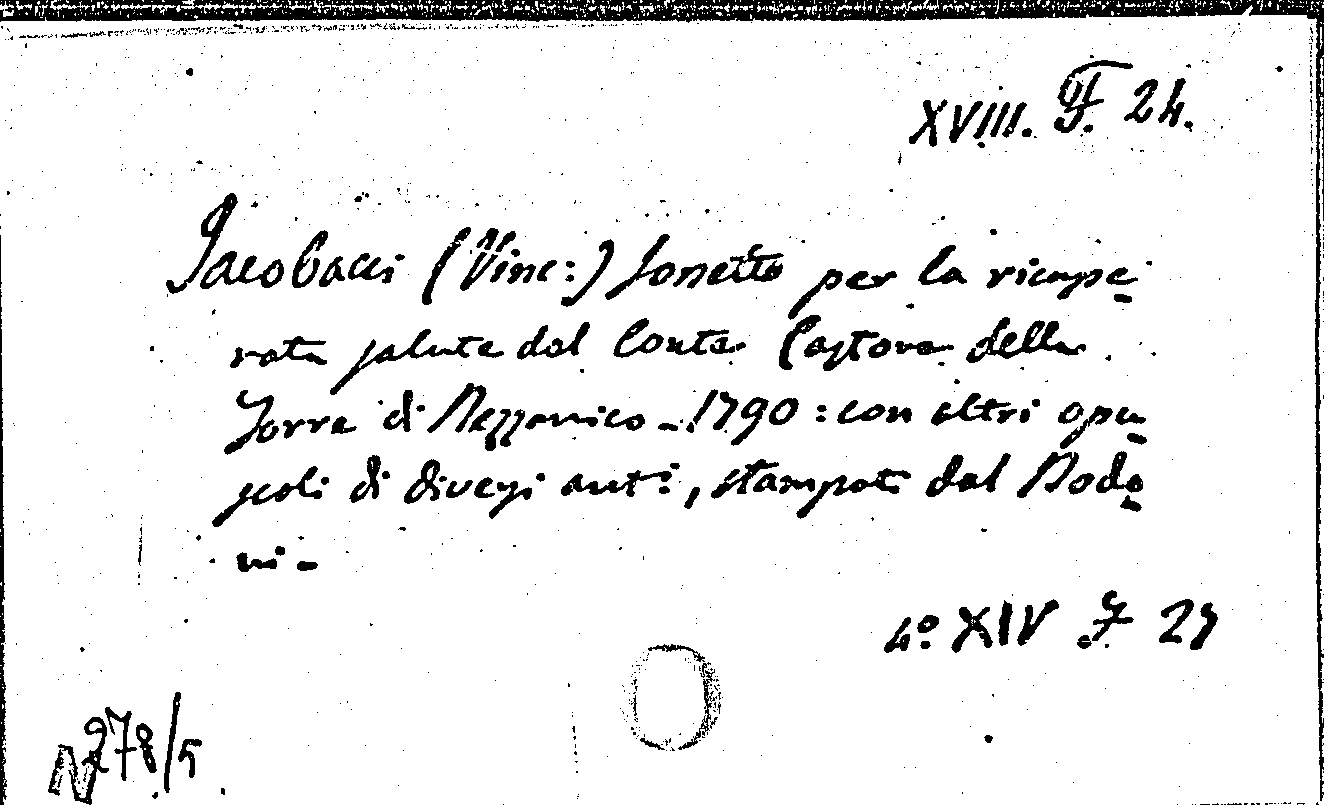 XVIII. F. 24.
Jacobacci (Vinc:) Sonetto per la ricupe-
rata salute del Conte Castore della
Torre di Rezzonico - 1790: con altri opu-
scoli di diversi auti, stampati dal Bodo-
ni -
4.º XIV F 29
N 278/5